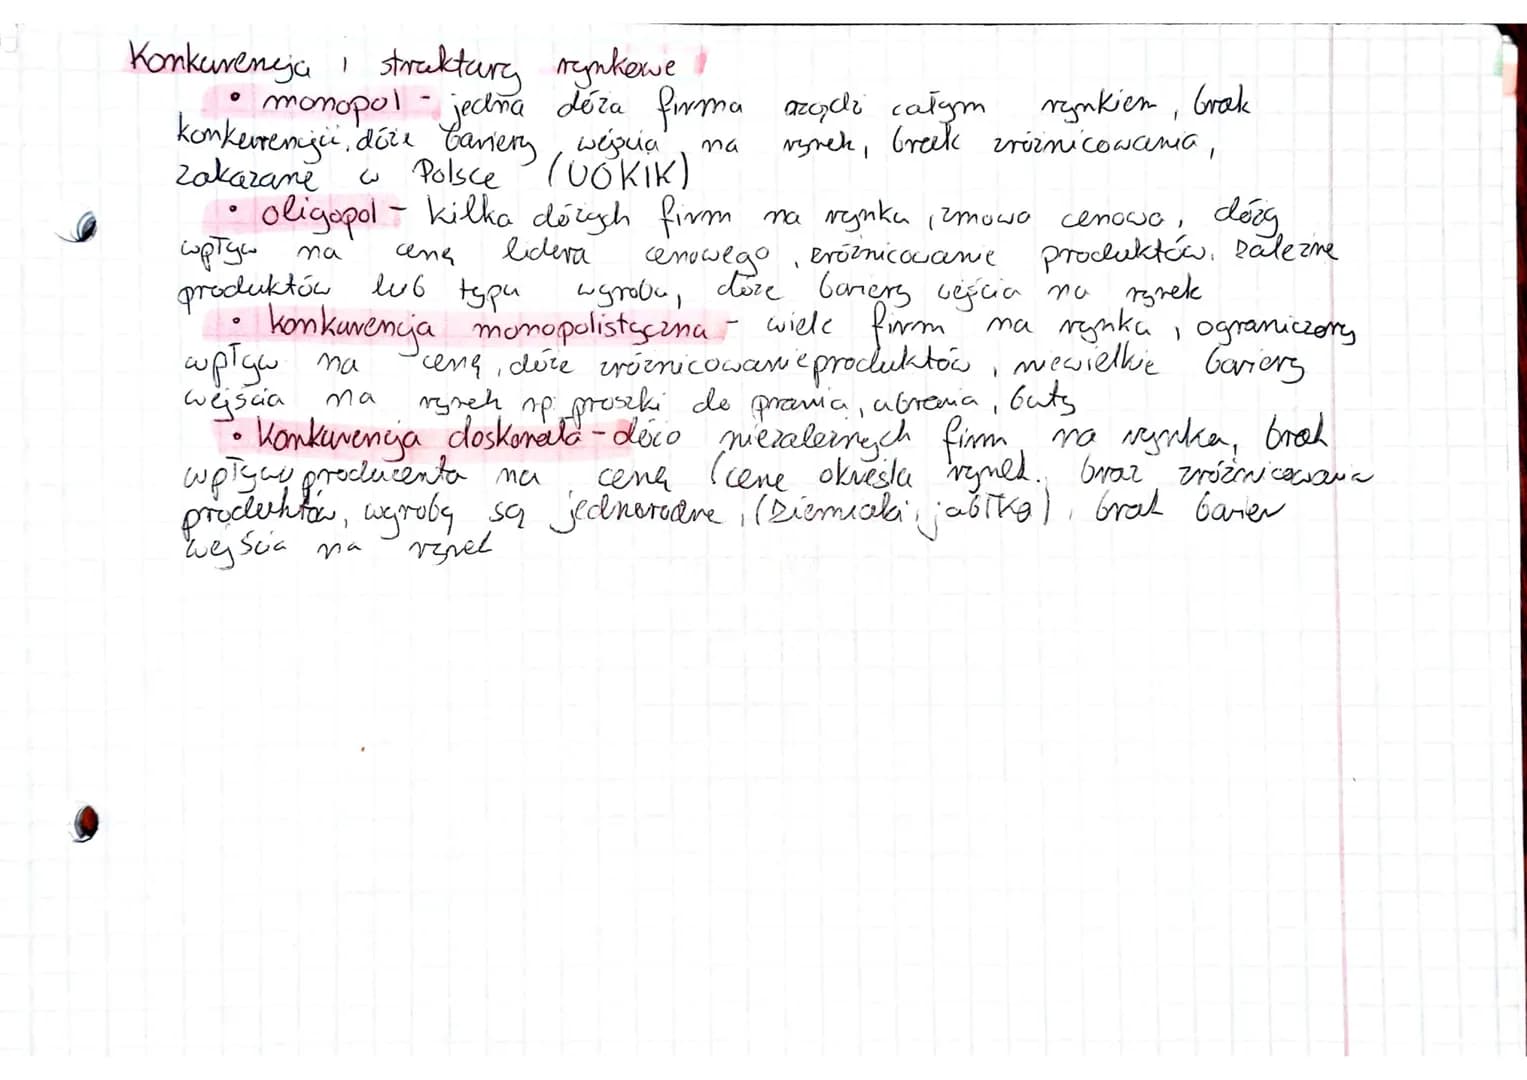 Konkurencja i struktury rynkowe
• monopol - jedna dóża firma rządzi całym rynkiem, brak
konkurencji, dóże bariery wejścia na rynek, brak zróżnicowania,
zakazane w Polsce (UOKIK)
• oligopol - kilka dóżych firm na rynku, zmowa cenowa, dóży
wpływ na cenę lidera cenowego, zróżnicowanie produktów. zależne
produktów lub typu wyrobu, dóże bariery wejścia na rynek
• konkurencja monopolistyczna - wiele firm na rynku, ograniczony
wpływ na cenę, dóże zróżnicowanie produktów, niewielkie bariery
wejścia na rynek np. proszki do prania, ubrania, buty
• konkurencja doskonała - dóżo niezależnych firm na rynku, brak
wpływu producenta na cenę (cene określa rynek. brak zróżnicowania
produktów, wyroby są jednorodne, (ziemiaki, jabłka), brak barier
wejścia na rynek